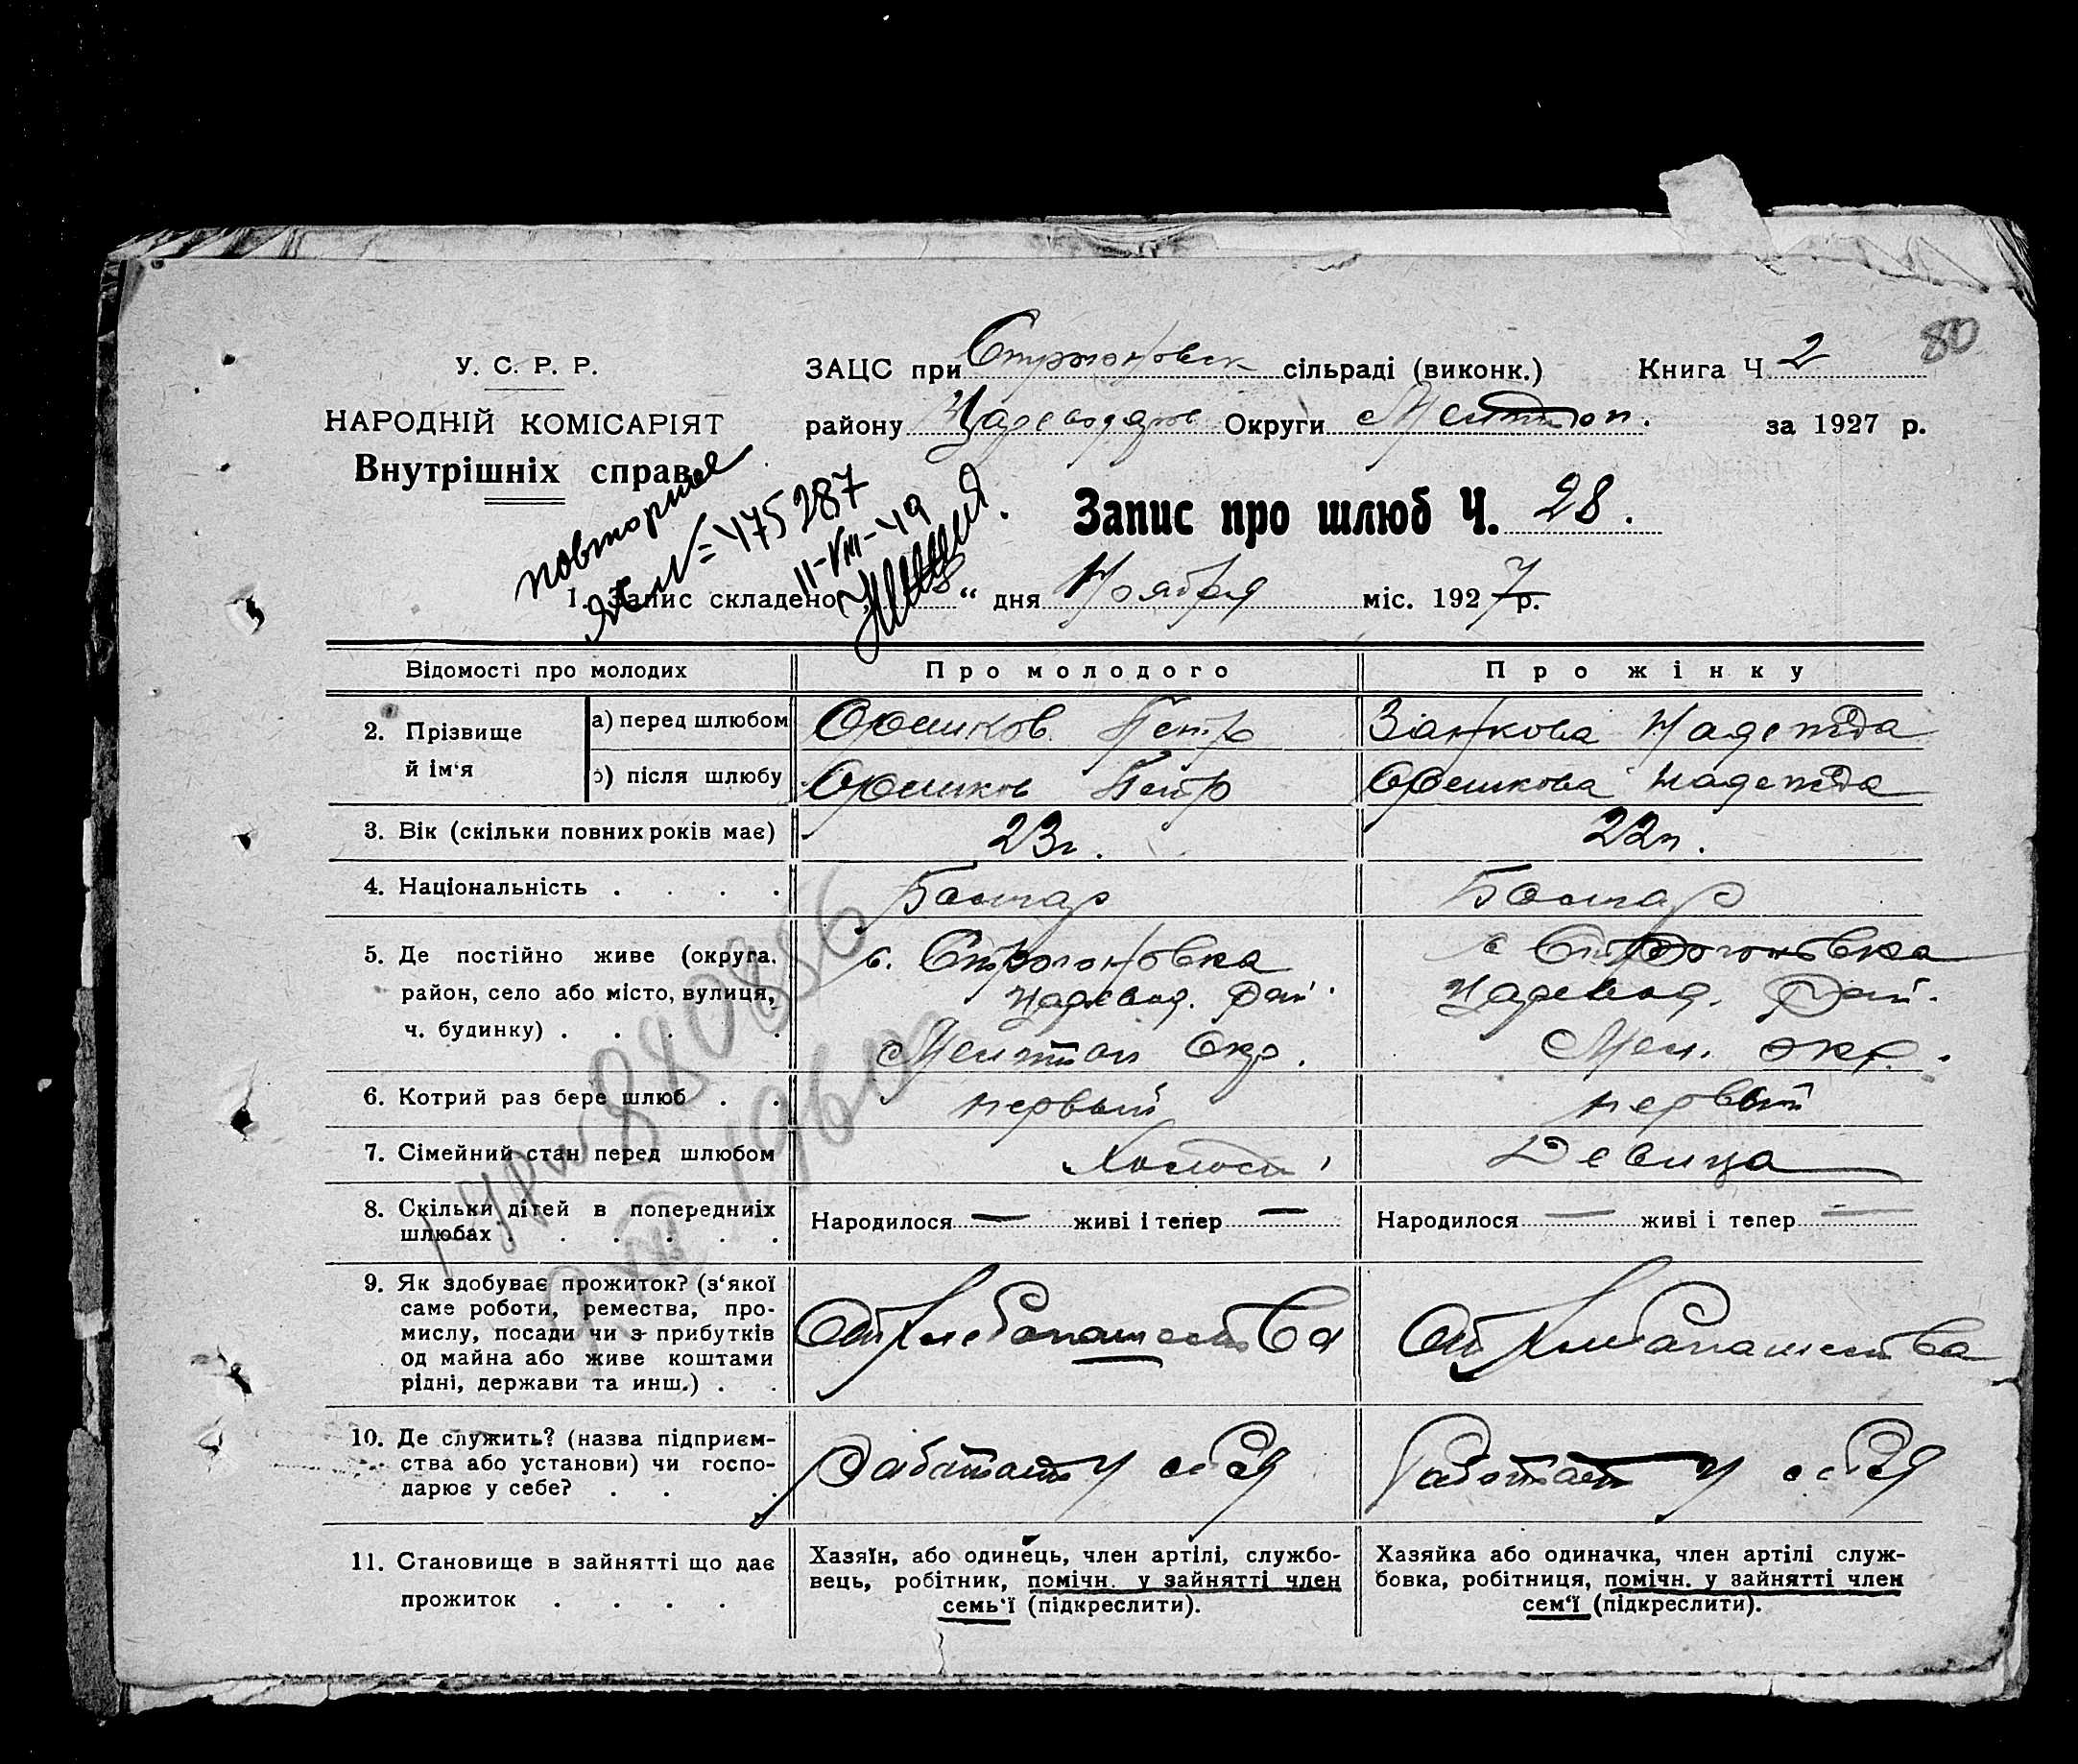 80
У. С. Р. Р.
НАРОДНІЙ КОМІСАРІЯТ
Внутрішніх справ
ЗАЦС при Строгоновск сільраді (виконк.) Книга Ч 2
району Цареводар Округи Мелитоп. за 1927 р.
Запис про шлюб Ч. 28.
повторное
ЯЖ № 475287
11-VIII-49
1. Запис складено „ “ дня Ноября міс. 1927 р.
Відомості про молодих Про молодого Про жінку
2. Прізвище й ім‘я а) перед шлюбом Орешков Петр Занкова Надежда
б) після шлюбу Орешков Петр Орешкова Надежда
3. Вік (скільки повних років має) 23 г. 22 г.
4. Національність . . . . Болгар Болгар
5. Де постійно живе (округа, с. Строгоновка с Строгоновка
район, село або місто, вулиця, Царевод. Рай. Царевод. Рай.
ч. будинку) . . . Мелитоп Окр. Мел. окр.
6. Котрий раз бере шлюб . . первый первый
7. Сімейний стан перед шлюбом Холост Девица
8. Скільки дітей в попередніх Народилося — живі і тепер — Народилося — живі і тепер —
шлюбах . . . . . .
9. Як здобуває прожиток? (з‘якої
саме роботи, ремества, про-
мислу, посади чи з прибутків От Хлебопашества От Хлебопашества
од майна або живе коштами
рідні, держави та инш.) . .
10. Де служить? (назва підприєм-
ства або установи) чи госпо- Работает У себя Работает У себя
дарює у себе? . . .
11. Становище в зайнятті що дає Хазяїн, або одинець, член артілі, службо- Хазяйка або одиначка, член артілі служ-
прожиток . . . . вець, робітник, помічн. у зайнятті член бовка, робітниця, помічн. у зайнятті член
семь‘ї (підкреслити). сем‘ї (підкреслити).
880856
1960